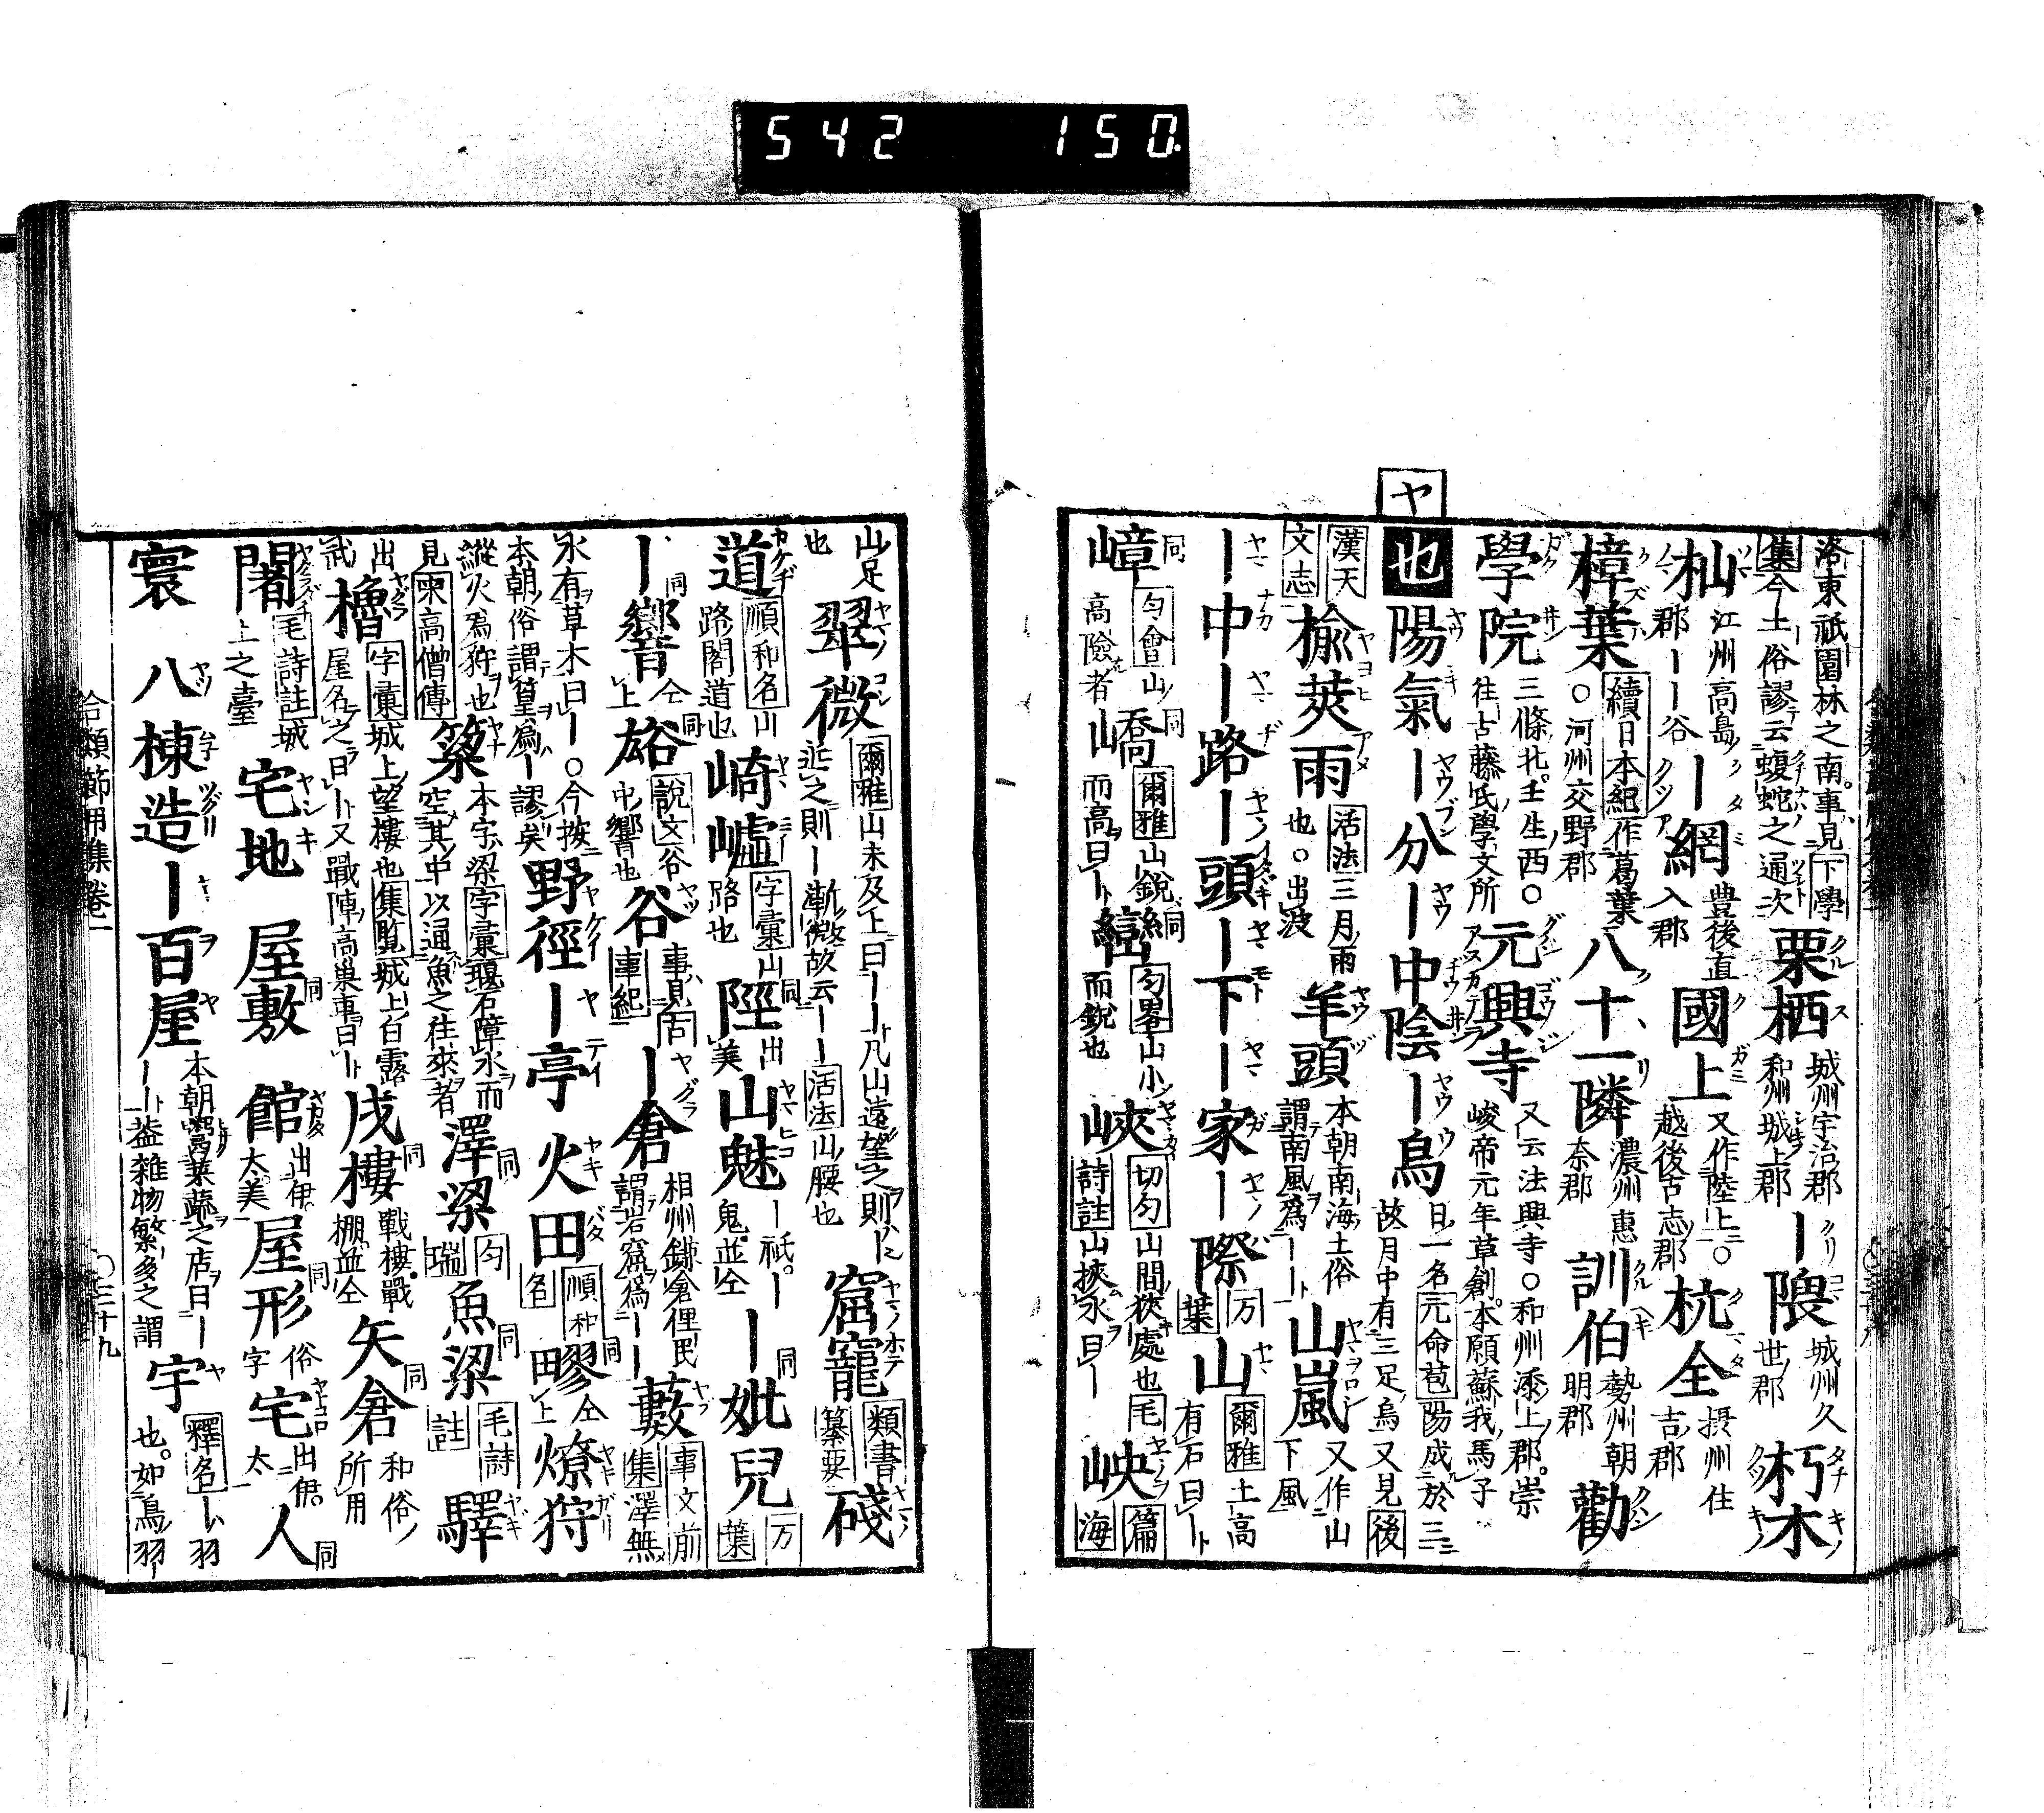 542 150
洛東祇園林之南事見下學
集今ー土俗謬云蝮蛇之通次 栗栖 城州宇治郡 和州城上郡 ー隈 城州久世郡 朽木
杣 江州高島郡ーー谷 ー網 豊後直入郡 國上 又作陸上○越後古志郡 杭全 摂州住吉郡
樟葉 續日本紀作葛葉○河州交野郡 八十一隣 濃州惠奈郡 訓伯 勢州朝明郡 勸
學院 三條北壬生西○往古藤氏學文所 元興寺 又云法興寺○和州添上郡崇峻帝元年草創本願蘇我馬子
ヤ
也 陽氣 ー分 ー中陰 ー烏 日一名元命苞陽成於三故月中有三足烏又見後
漢天文志 楡莢雨 活法三月雨也○出波 羊頭 本朝南海土俗謂南風爲ーー 山嵐 又作山下風
ー中 ー路 ー頭 ー下 ー家 ー際 万葉 山 爾雅土高有石曰ー
嶂 同 匀會山高險者 嶠 同 爾雅山銳而高曰ー 巒 同 匀畧山小而銳也 峽 切匀山間狹處也毛詩註山挾水曰ー 岟 篇海
山足也 翠微 爾雅山未及上曰ーー凡山遠望之則ーー近之則ー漸微故云ーー活法山腰也 窟寵 類書纂要 磩
道 順和名山路閣道也 崎嶇 字彙山路也 陘 同 出美 山魅 ー祇ー鬼並仝 ー妣兒 同 万葉
ー響 同 仝上 谽 同 說文谷中響也 谷 事見吉事紀 ー倉 相州鎌倉俚民謂岩窟爲ーー 藪 事文前集澤無
水有草木曰ー○今按本朝俗謂篁爲ー謬矣 野徑 ー亭 火田 順和名 疁 同 仝上 燎狩
縱火爲狩也見東高僧傳 簗 本字梁字彙堰石障水而空其中以通魚之往來者 澤梁 同 匀瑞 魚梁 同 毛詩註 驛
出武 櫓 字彙城上望樓也集覧城上白露屋名之曰ー又戰陣高巣車曰ー 戍樓 同 戰樓戰棚並仝 矢倉 同 和俗所用
闍 毛詩註城上之臺 宅地 屋敷 同 館 出伊太美 屋形 同 俗字 宅 出伊太 人 同
寰 八棟造 ー百屋 本朝鬻菜蔬之店曰ーーー蓋雜物繁多之謂 宇 釋名ー羽也如鳥羽
合類節用集卷一 ○三十九